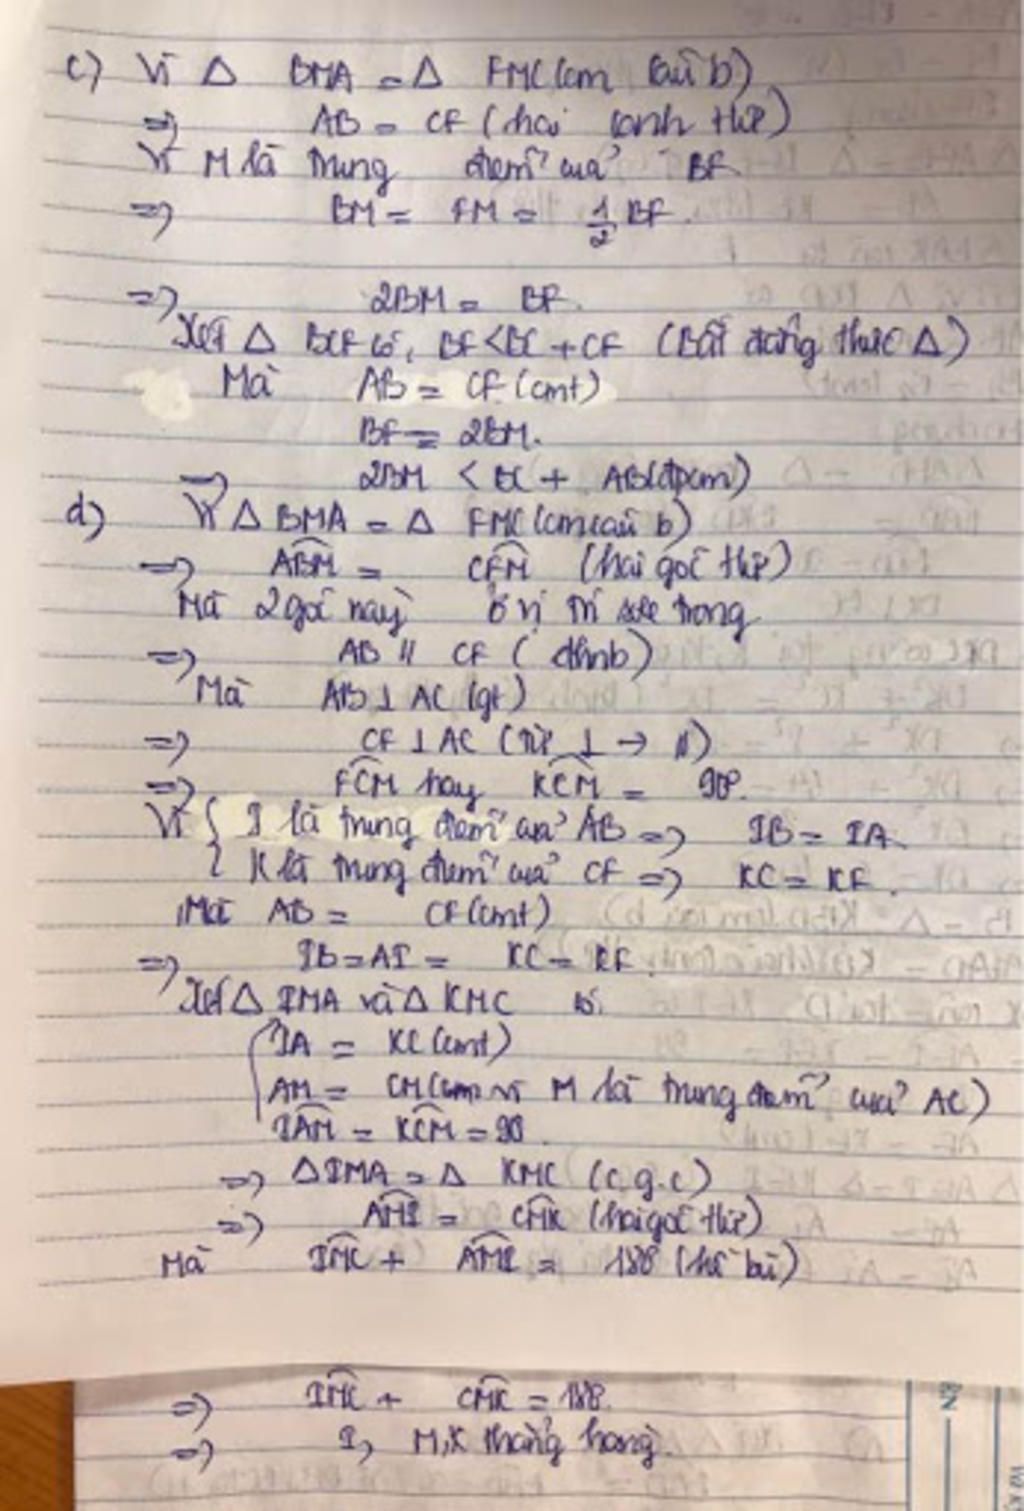 c) Vì △ BMA = △ FMC (cm câu b)
=> AB = CF (hai cạnh t/ứ)
Vì M là trung điểm của BF
=> BM = FM = 1/2 BF.
=> 2BM = BF.
Xét △ BCF có, BF < BC + CF (Bất đẳng thức △)
Mà AB = CF (cmt)
BF = 2BM.
=> 2BM < BC + AB (đpcm)
d) Vì △ BMA = △ FMC (cm câu b)
=> ABM = CFM (hai góc t/ứ)
Mà 2 góc này ở vị trí sole trong
=> AB // CF (dhnb)
Mà AB ⊥ AC (gt)
=> CF ⊥ AC (từ ⊥ → //)
=> FCM hay KCM = 90°.
Vì { I là trung điểm của AB => IB = IA.
{ K là trung điểm của CF => KC = KF.
Mà AB = CF (cmt)
=> IB = AI = KC = KF.
Xét △ IMA và △ KMC có.
IA = KC (cmt)
AM = CM (cm vì M là trung điểm của AC)
IAM = KCM = 90.
=> △ IMA = △ KMC (c.g.c)
=> AMI = CMK (hai góc t/ứ)
Mà IMC + AMI = 180 (kề bù)
=> IMC + CMK = 180.
=> I, M, K thẳng hàng.